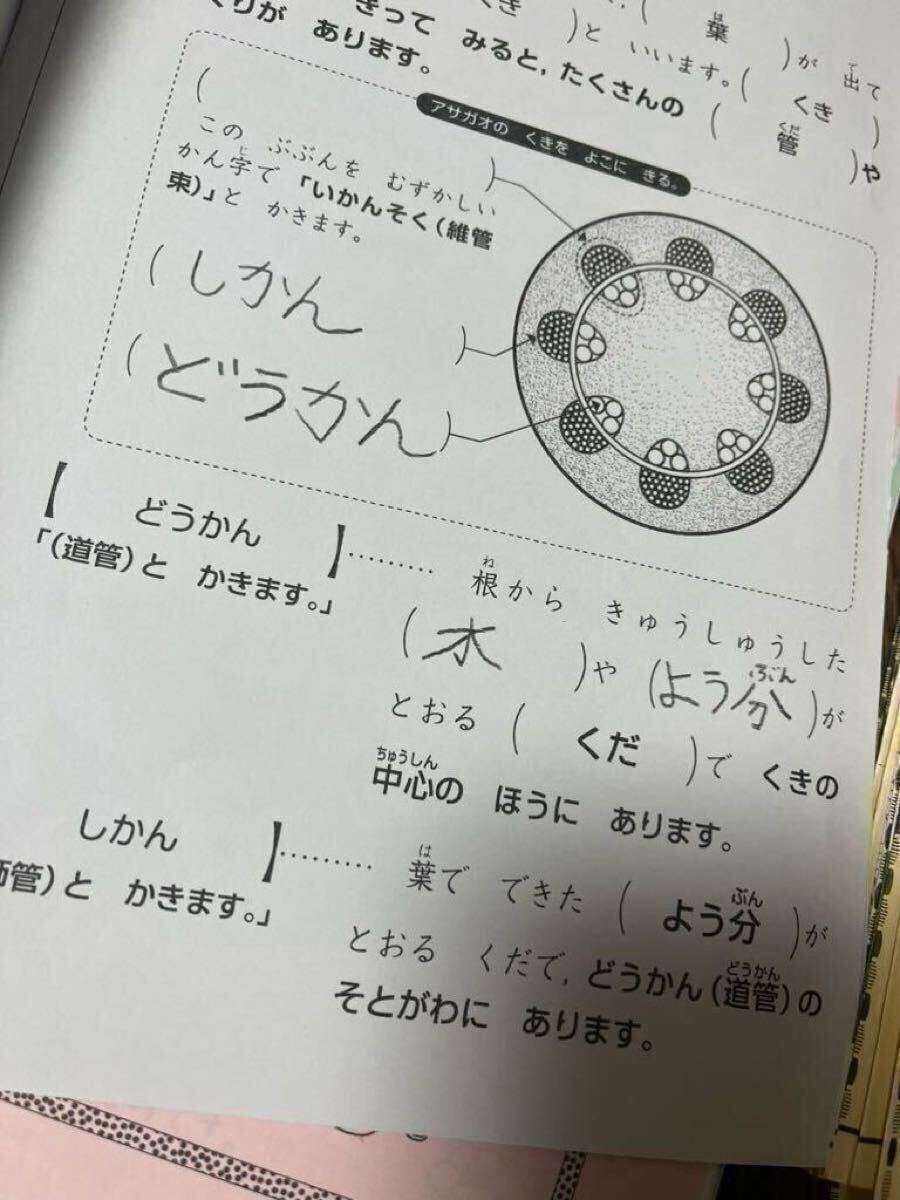 （ 葉 ）が 出て
くき ）と いいます。（ くき ）
きって みると，たくさんの （ 管 ）や
くりが あります。
アサガオの くきを よこに きる。
（ ）
この ぶぶんを むずかしい
かん字で 「いかんそく（維管
束）」と かきます。
（ しかん ）
（ どうかん ）
【 どうかん 】……… 根から きゅうしゅうした
「（道管）と かきます。」
（ 水 ）や （ よう分 ）が
とおる （ くだ ）で くきの
中心の ほうに あります。
しかん 】……… 葉で できた （ よう分 ）が
管）と かきます。」
とおる くだで，どうかん（道管）の
そとがわに あります。